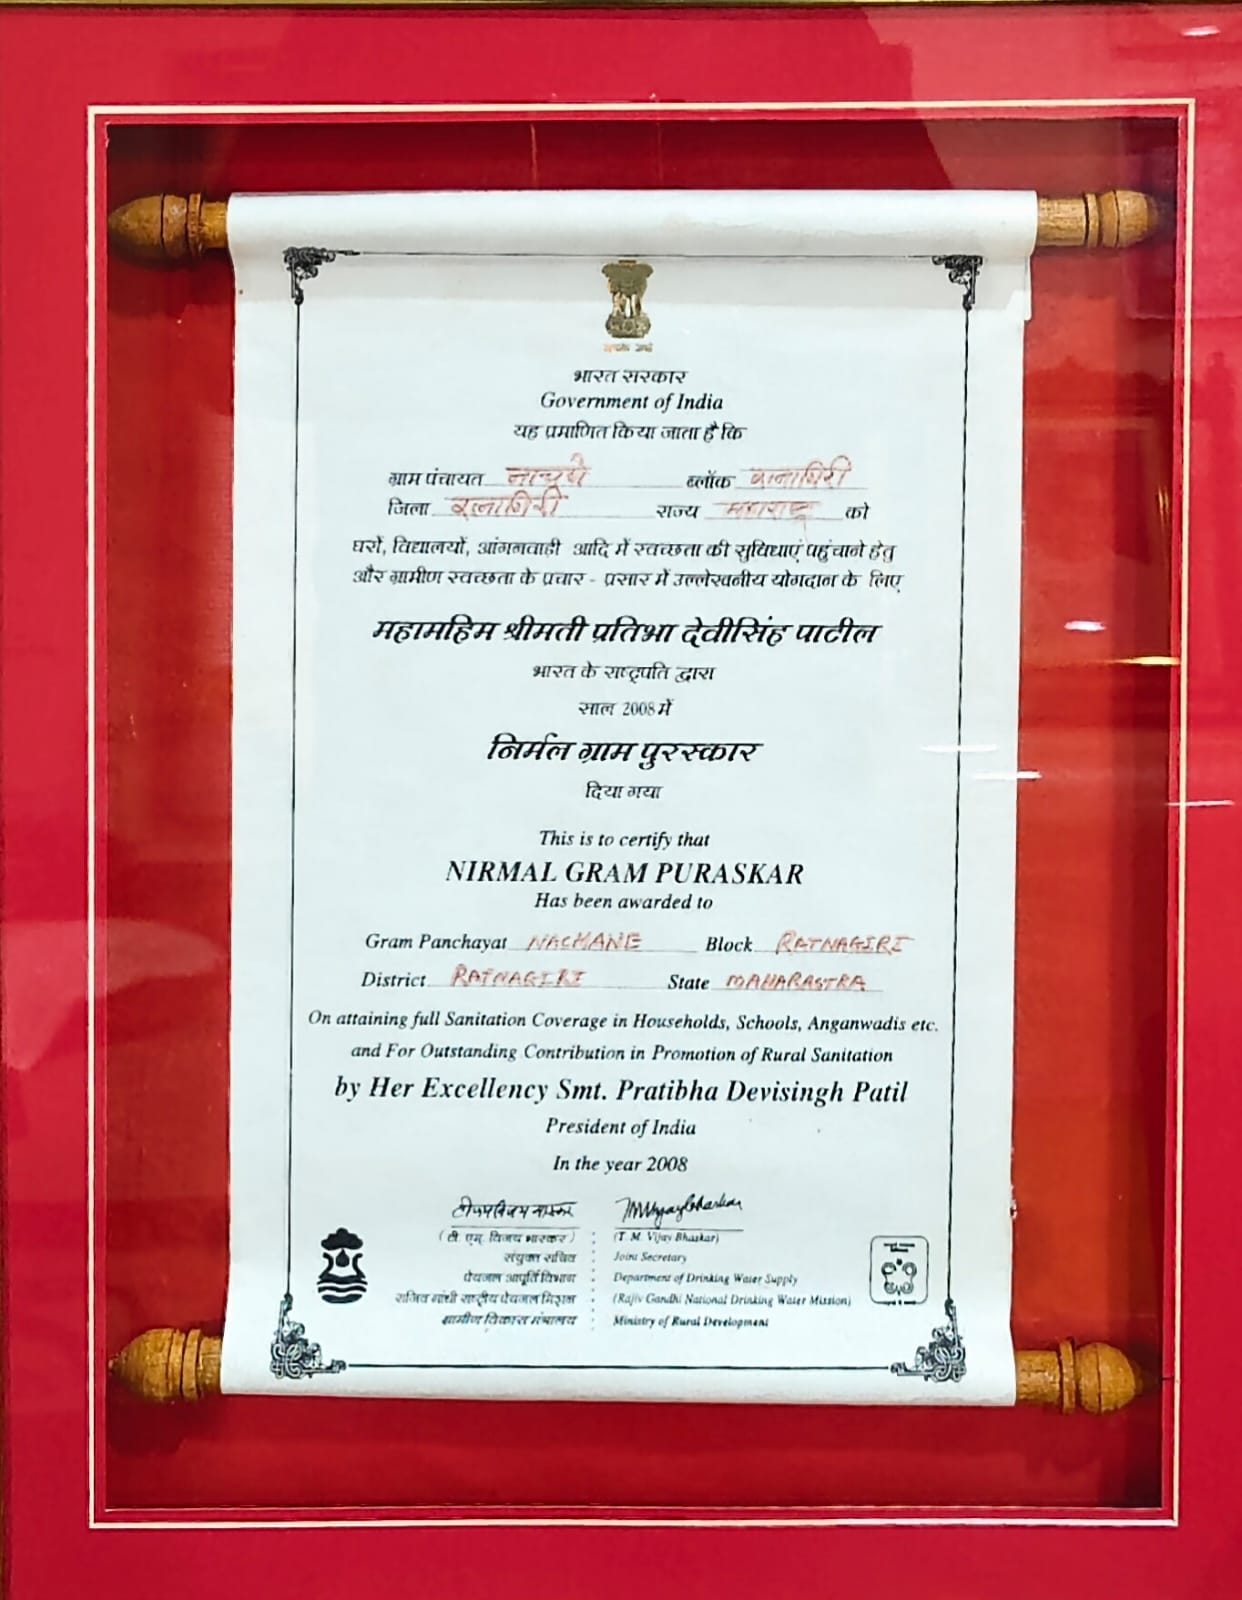 भारत सरकार
Government of India
यह प्रमाणित किया जाता है कि
ग्राम पंचायत नाचणे ब्लॉक रत्नागिरी
जिला रत्नागिरी राज्य महाराष्ट्र को
घरों, विद्यालयों, आंगनवाड़ी आदि में स्वच्छता की सुविधाएं पहुंचाने हेतु
और ग्रामीण स्वच्छता के प्रचार - प्रसार में उल्लेखनीय योगदान के लिए
महामहिम श्रीमती प्रतिभा देवीसिंह पाटील
भारत के राष्ट्रपति द्वारा
साल 2008 में
निर्मल ग्राम पुरस्कार
दिया गया
This is to certify that
NIRMAL GRAM PURASKAR
Has been awarded to
Gram Panchayat NACHANE Block RATNAGIRI
District RATNAGIRI State MAHARASTRA
On attaining full Sanitation Coverage in Households, Schools, Anganwadis etc.
and For Outstanding Contribution in Promotion of Rural Sanitation
by Her Excellency Smt. Pratibha Devisingh Patil
President of India
In the year 2008
(टी. एम. विजय भास्कर) : (T. M. Vijay Bhaskar)
संयुक्त सचिव : Joint Secretary
पेयजल आपूर्ति विभाग : Department of Drinking Water Supply
राजिव गांधी राष्ट्रीय पेयजल मिशन : (Rajiv Gandhi National Drinking Water Mission)
ग्रामीण विकास मंत्रालय : Ministry of Rural Development